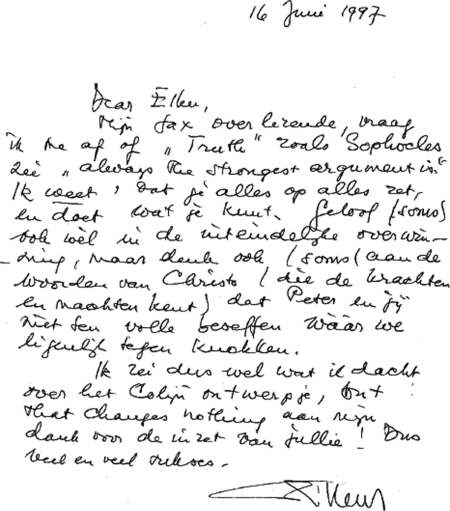 16 Juni 1997
Dear Ellen,
Mijn fax overlezende, vraag
ik me af of „Truth" zoals Sophocles
zei „always the strongest argument is".
Ik weet, dat je alles op alles zet,
en doet wat je kunt. Geloof (soms)
ook wèl in de uiteindelijke overwin-
-ning, maar denk ook (soms( aan de
woorden van Christo (die de krachten
en machten kent) dat Peter en jij
niet ten volle beseffen wáár we
eigenlijk tegen knokken.
Ik zei dus wel wat ik dacht
over het Colijn ontwerpje, but
that changes nothing aan mijn
dank voor de inzet van jullie! Dus
veel en veel sukses.